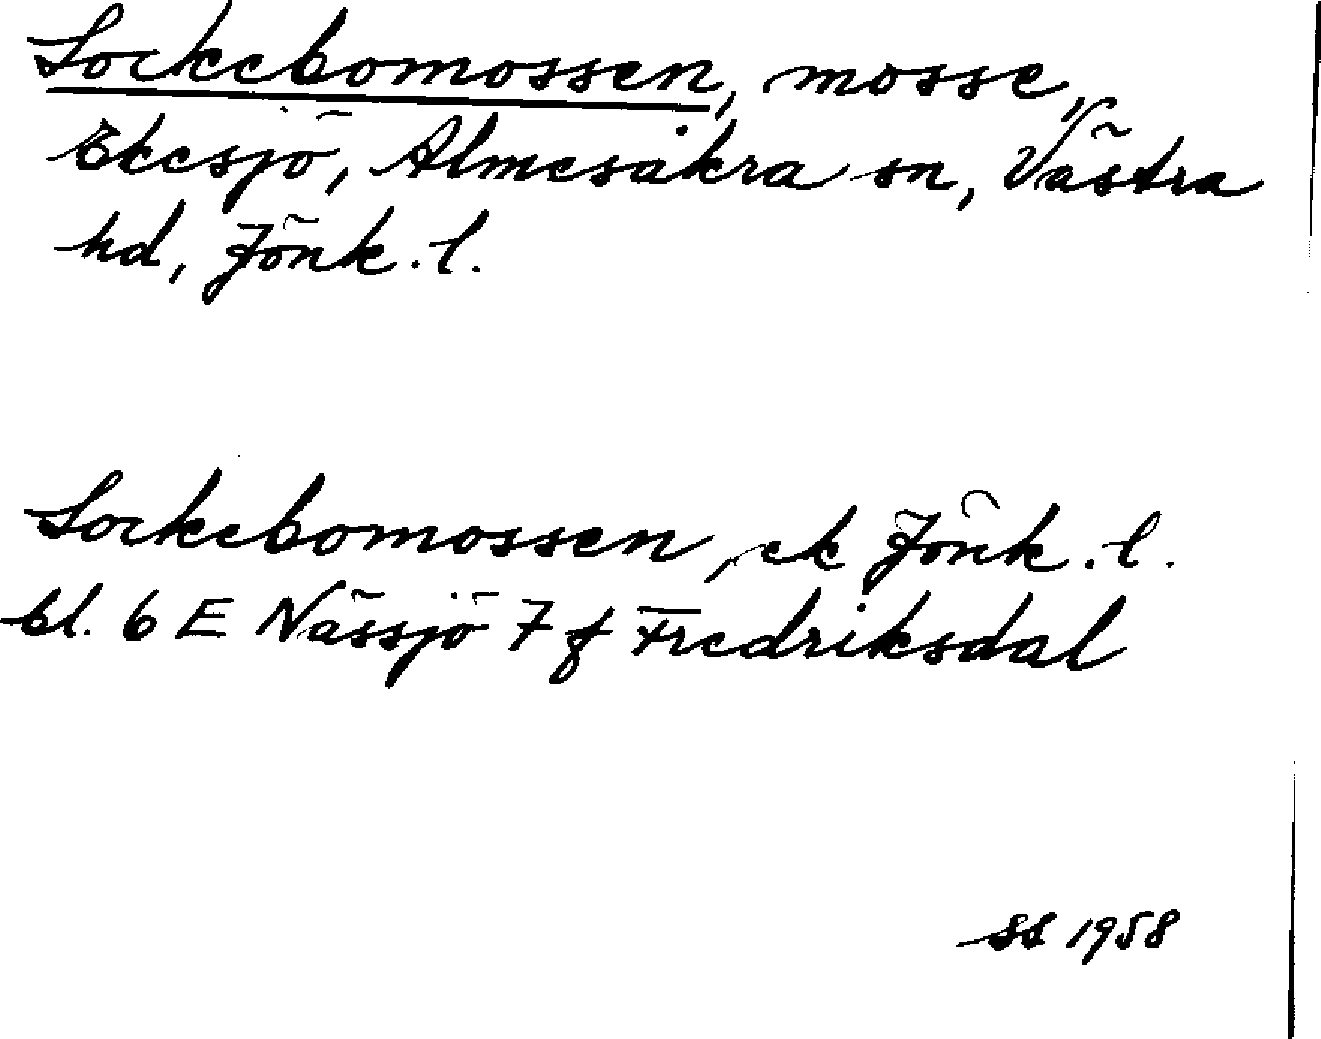 Sockebomossen, mosse,
Ekesjö, Almesåkra sn, Västra
hd, Jönk. l.
Sockebomossen, ek Jönk. l.
bl. 6 E Nässjö 7 f Fredriksdal
SS 1958